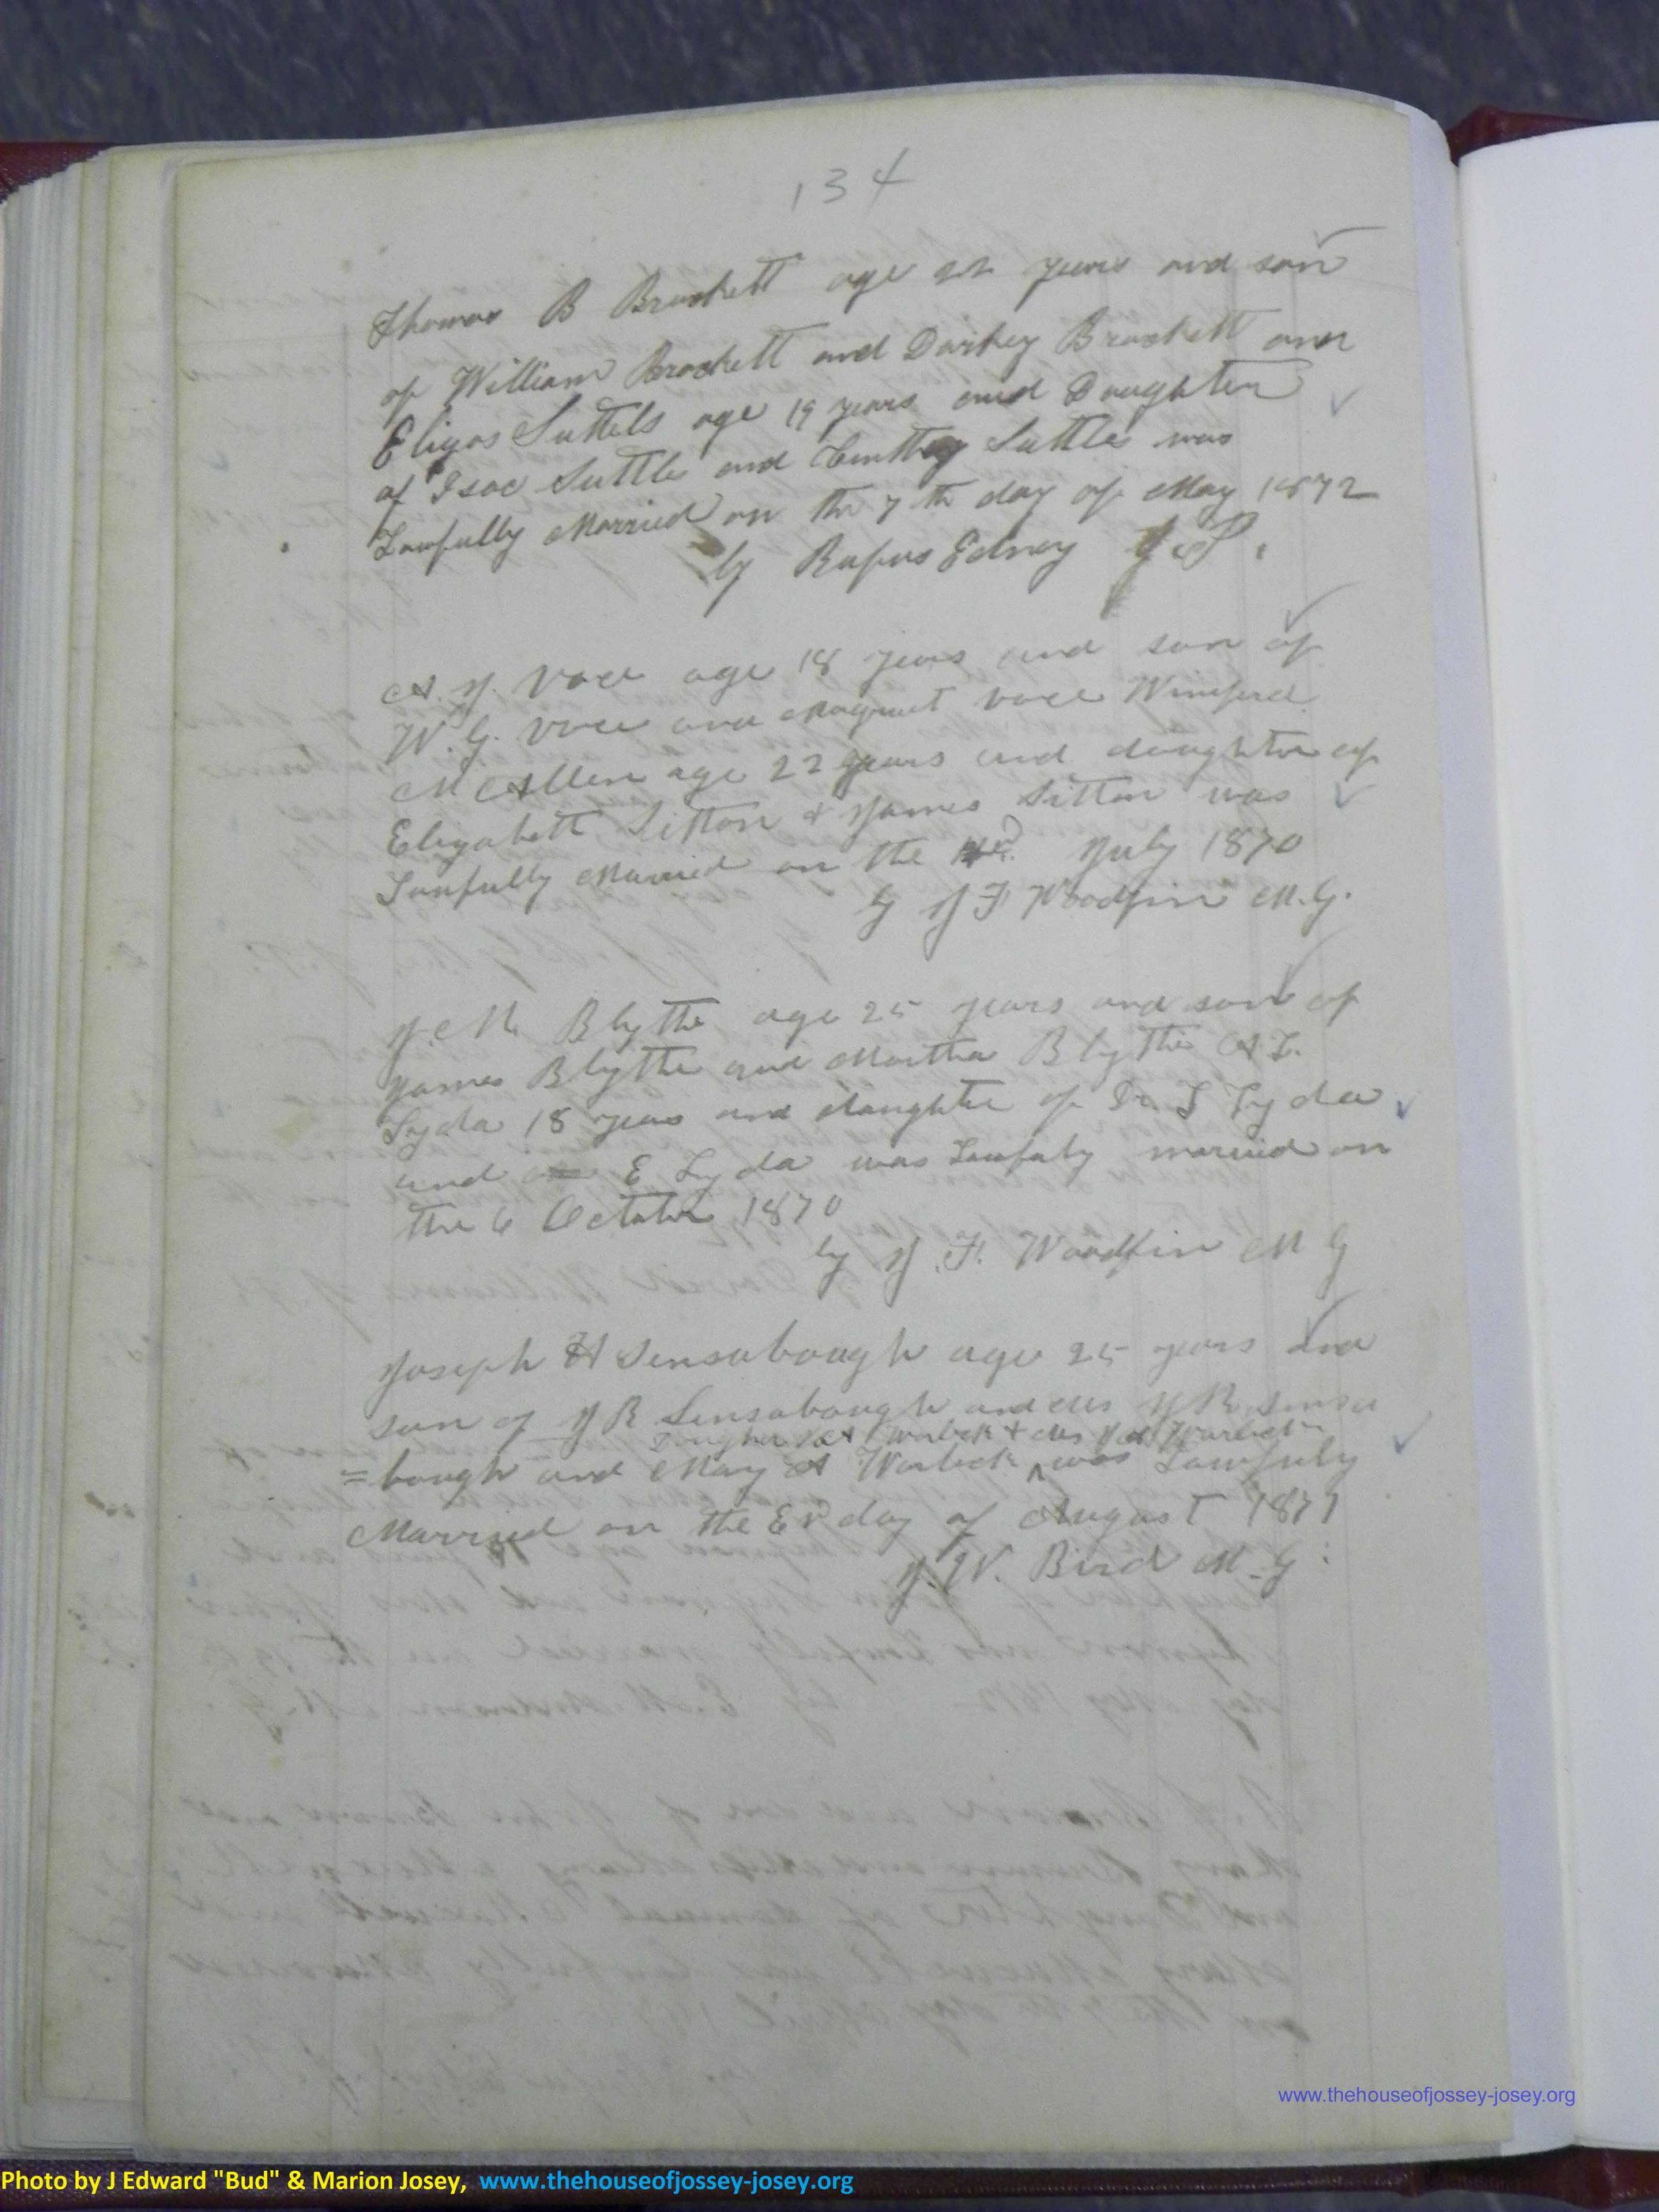 134
Thomas B Brackett age 22 years and son
of William Brackett and Darkey Brackett and
Elizas Suttels age 19 years and Daughter
of Isac Suttle and Suttles was
Lawfully Married on the 7th day of May 1872
by Rufus Edney J. P.
A. J. Vace age 18 years and son of
W. G. Vace and Vace Winiferd
M Allen age 22 years and daughter of
Elizabeth Sitton & James Sitton was
Lawfully Married on the July 1870
by J F Woodfin M.G.
J. M. Blythe age 25 years and son of
James Blythe and Martha Blythe A. L.
Lyda 18 years and daughter of L Lyda
and E Lyda was Lawfuly married on
the 6 October 1870
by J. F. Woodfin M G
Joseph H Sensabough age 25 years and
son of J R Sensabough and Mrs J R Sensa
Daughter J A Warlick & Mrs J A Warlick
=bough and Mary A Warlick ^ was Lawfuly
Married on the day of August 1871
J. W. Bird M. G.
www.thehouseofjossey-josey.org
Photo by J Edward "Bud" & Marion Josey, www.thehouseofjossey-josey.org